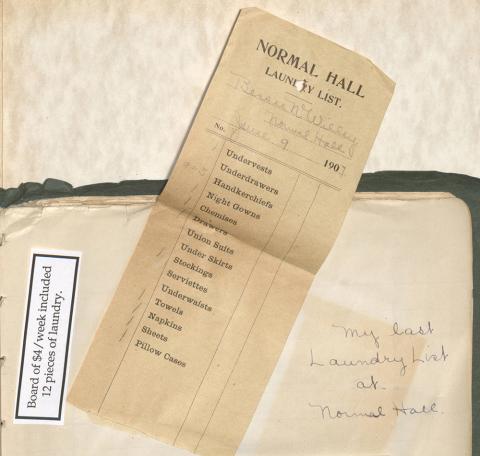 NORMAL HALL
LAUNDRY LIST.
Normal Hall
No. June 9 190
Undervests
Underdrawers
Handkerchiefs
Night Gowns
Chemises
Drawers
Union Suits
Under Skirts
Stockings
Serviettes
Underwaists
Towels
Napkins
Sheets
Pillow Cases
Board of $4/week included
12 pieces of laundry.
My last
Laundry List
at
Normal Hall.